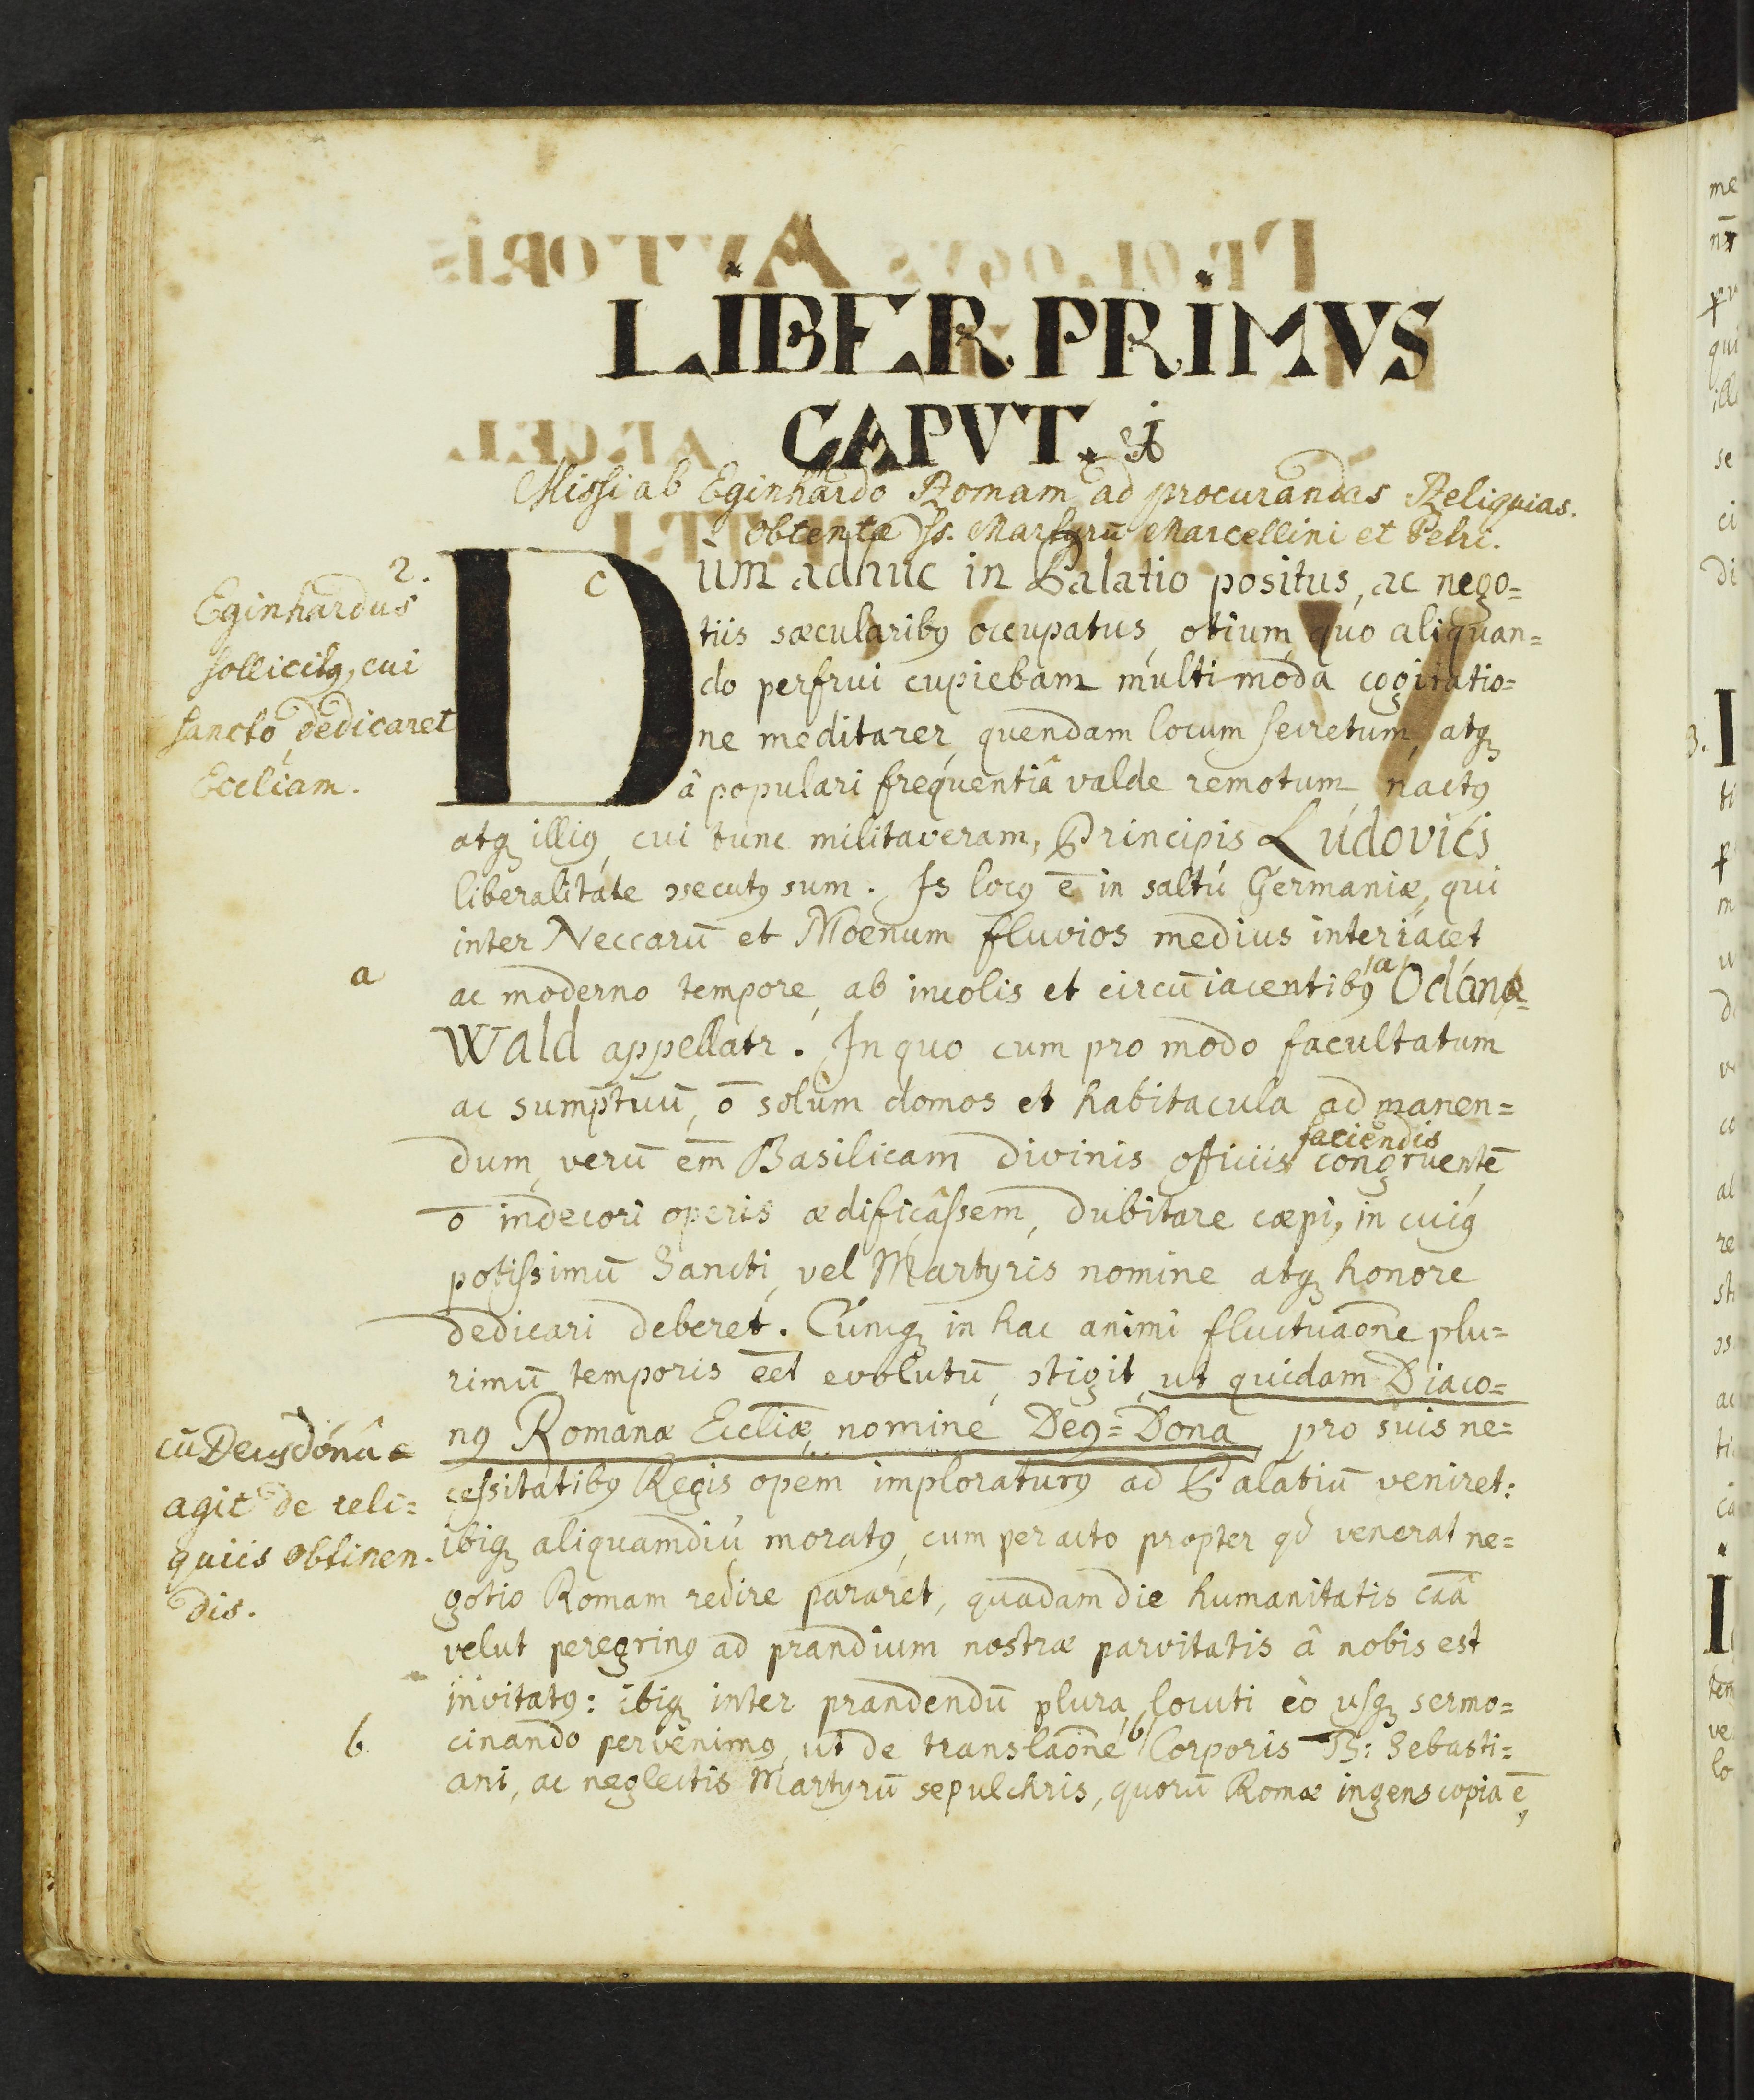 LIBER PRIMVS
CAPVT. I
Missi ab Eginhardo Romam ad procurandas Reliquias.
obtentæ SS. Martyrū Marcellini et Petri.
2.
Eginhardus
sollicitꝰ, cui
sancto dedicaret
Eccliam.
Dum adhuc in Palatio positus, ac nego=
tiis sæcularibꝰ occupatus, otium, quo aliquan=
do perfrui cupiebam multimoda cogitatio=
ne meditarer, quendam locum secretum, atqꝫ
â populari frequentiâ valde remotum, nactꝰ
atqꝫ illiꝰ, cui tunc militaveram, Principis Ludovici
liberalitate ↄsecutꝰ sum. Is locꝰ ē in saltu Germaniæ, qui
inter Neccarū et Moenum fluvios medius interiacet
a
ac moderno tempore, ab incolis et circūiacentibꝰ /a/ Odano=
Wald appellatr. In quo cum pro modo facultatum
ac sumptuū, ō solùm domos et habitacula ad manen=
dum, verū em̄ Basilicam divinis officiis faciendis congruentē
ō indecori operis ædificâssem, dubitare cæpi, in cuiꝰ
potissimū Sancti, vel Martyris nomine atqꝫ honore
dedicari deberet. Cumqꝫ in hac animi fluctuaōne plu=
rimū temporis eēt evolutū, ↄtigit, ut quidam Diaco=
nꝰ Romanæ Eccliæ, nomine Deꝰ=Dona pro suis ne=
cū Deusdonâ
agit de reli=
quiis obtinen.
dis.
cessitatibꝰ Regis opem imploraturꝰ ad Palatiū veniret:
ibiqꝫ aliquamdiu moratꝰ, cum peracto propter qd venerat ne=
gotio Romam redire pararet, quadam die humanitatis caā
velut peregrinꝰ ad prandium nostræ parvitatis â nobis est
invitatꝰ: ibiqꝫ inter prandendū plura locuti eò usqꝫ sermo=
b
cinando pervenimꝰ, ut de translaōne /b/ Corporis B: Sebasti=
ani, ac neglectis Martyrū sepulchris, quorū Romæ ingens copia ē,